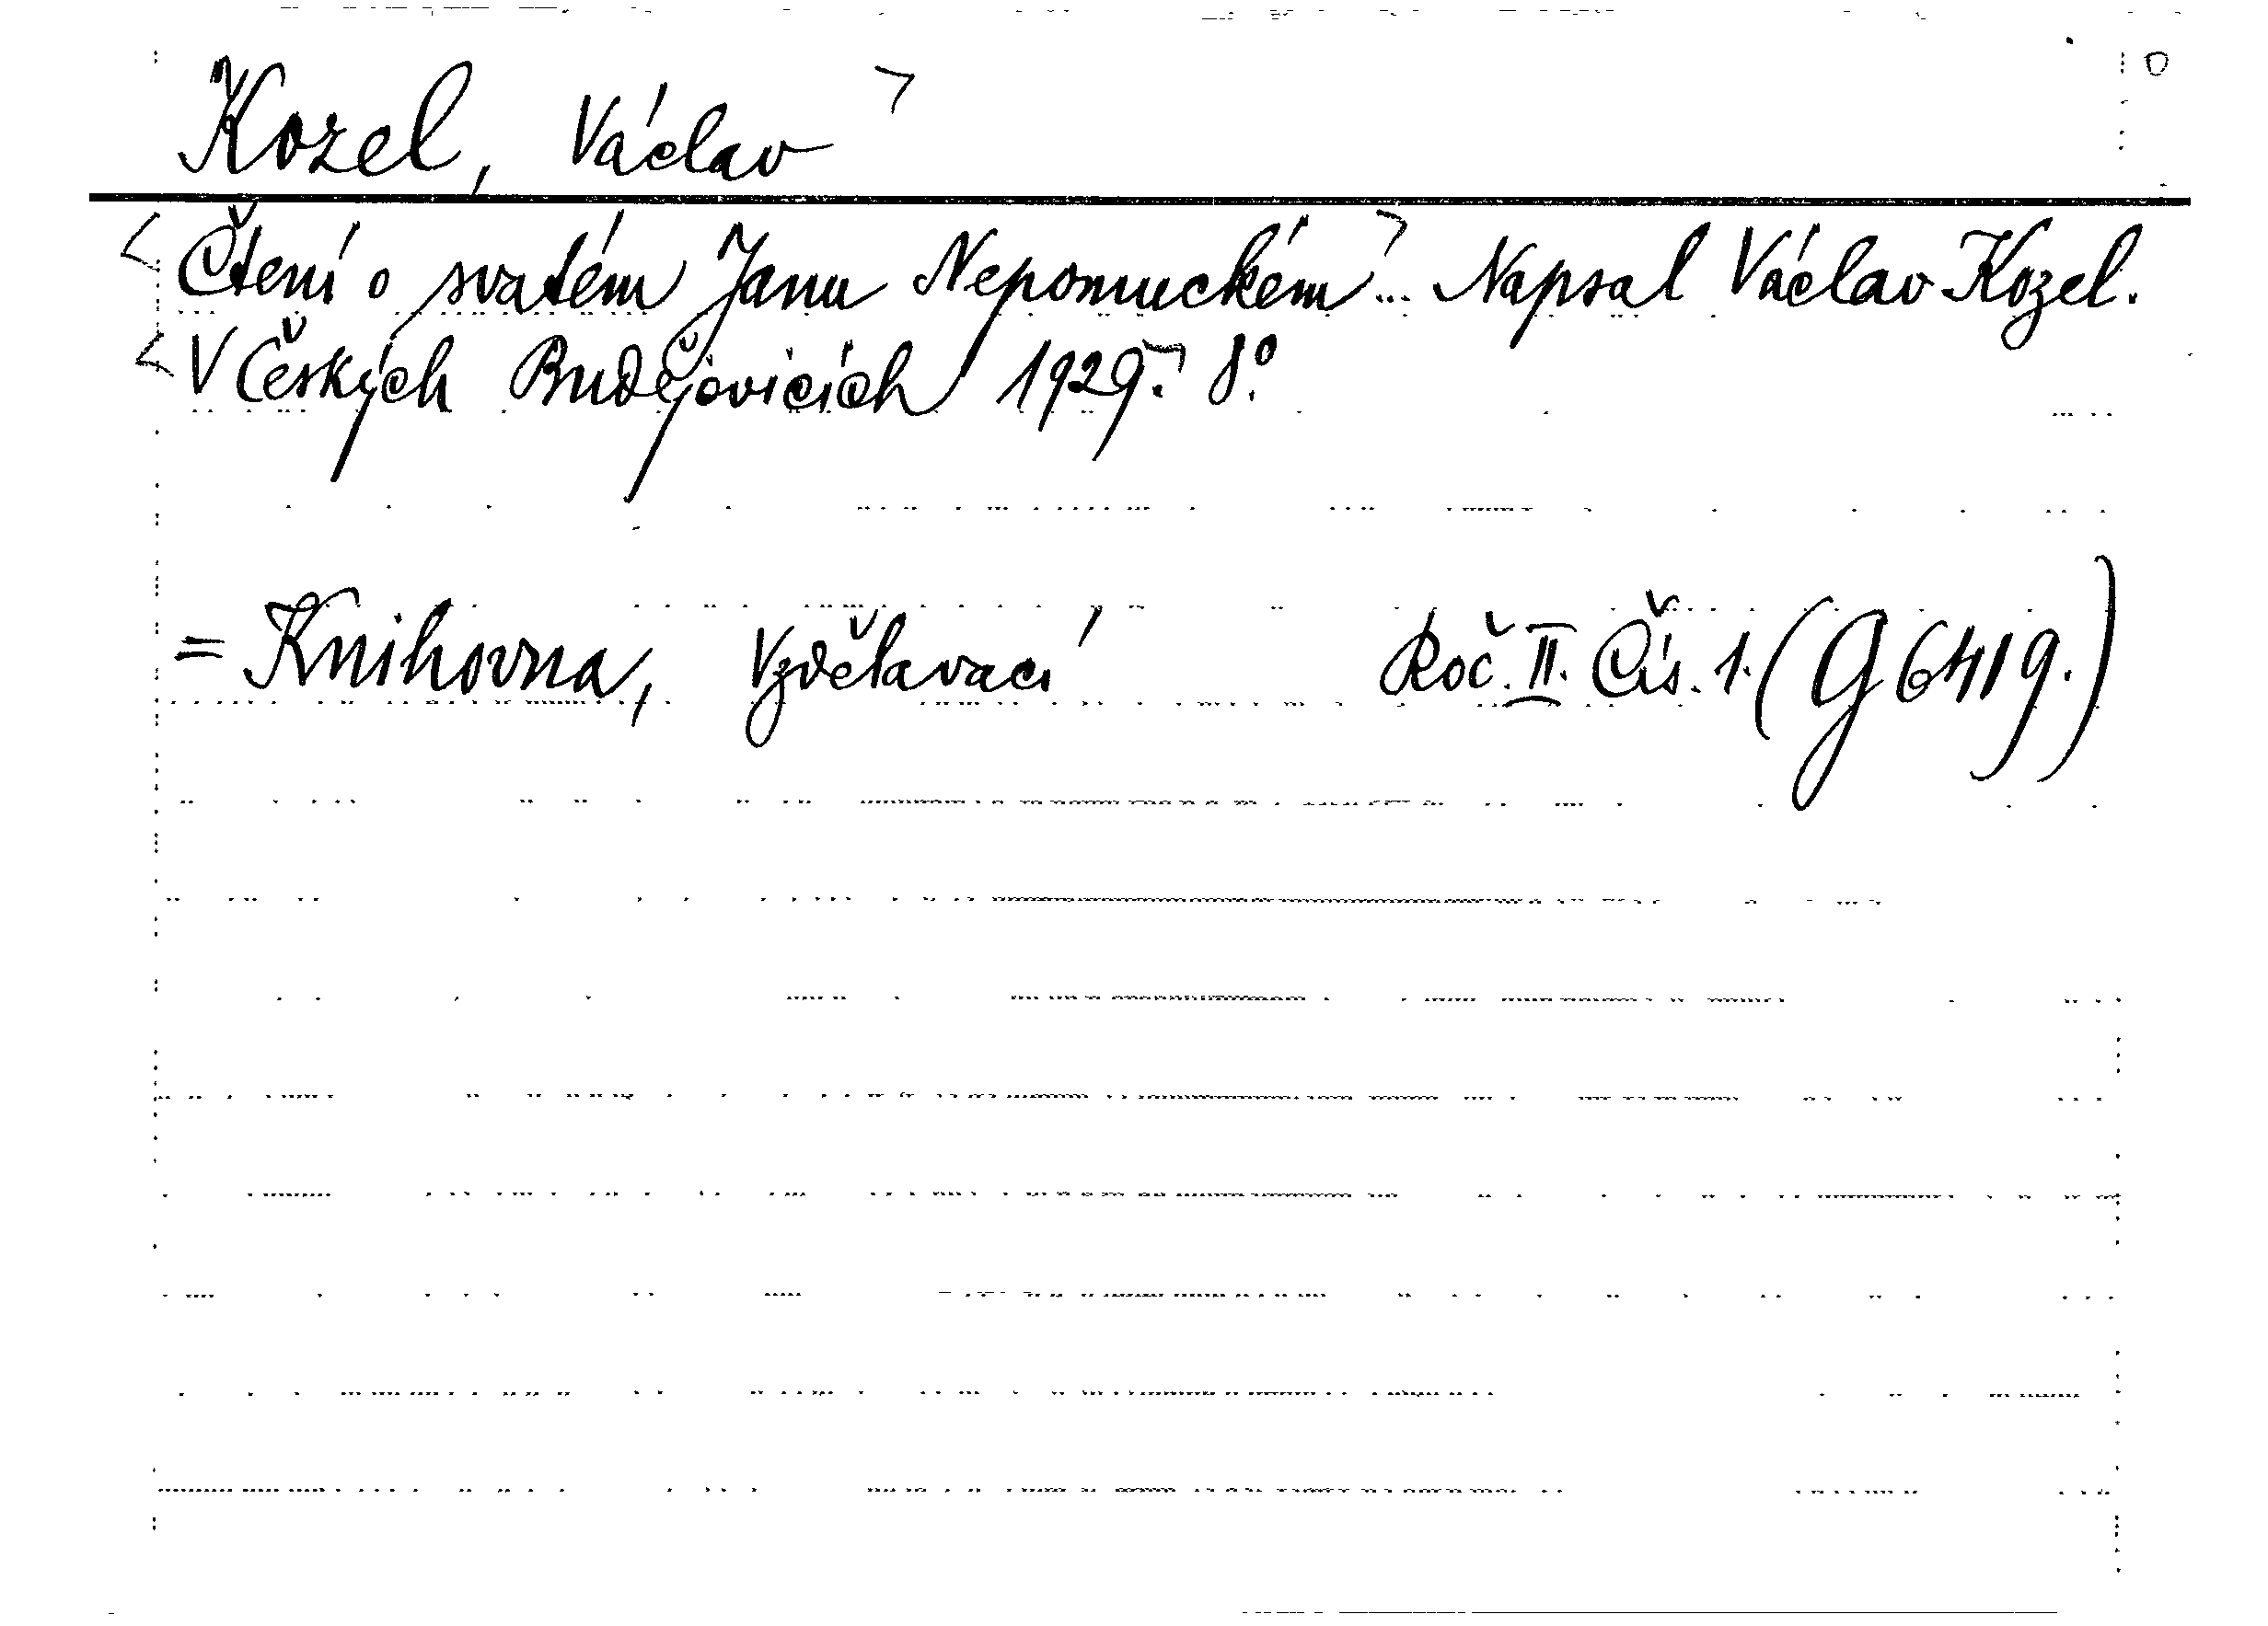 Kozel, Václav
Čtení o svatém Janu Nepomuckém... Napsal Václav Kozel.
V Českých Budějovicích 1929. 8°.
= Knihovna, Vzdělavací Roč. II. Čís. 1. (G 6419.)